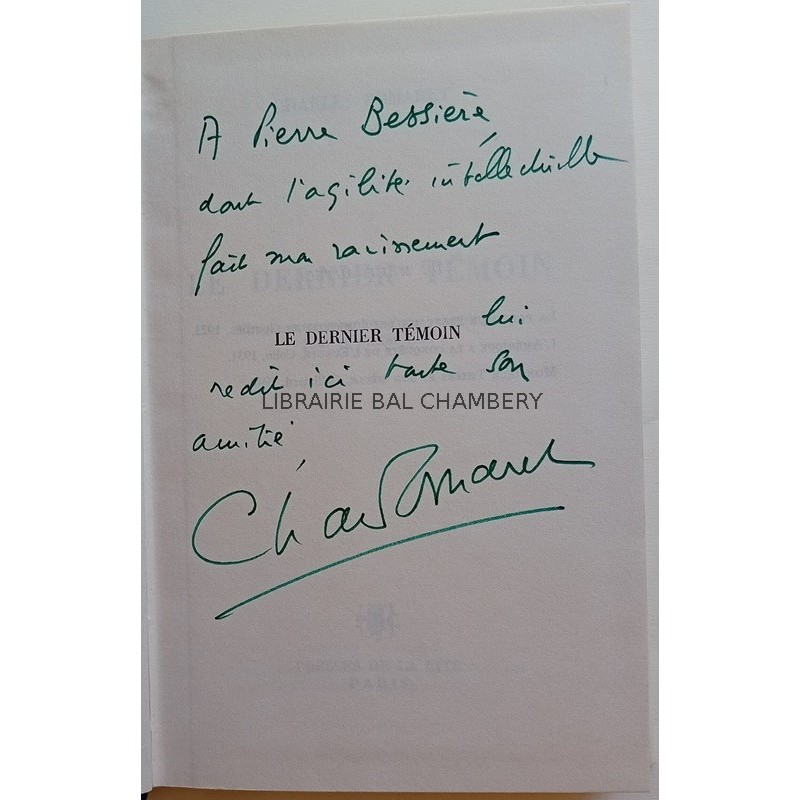 A Pierre Bessière
dont l'agilité intellectuelle
fait mon ravissement
LE DERNIER TÉMOIN lui
redit ici toute son
LIBRAIRIE BAL CHAMBERY
amitié